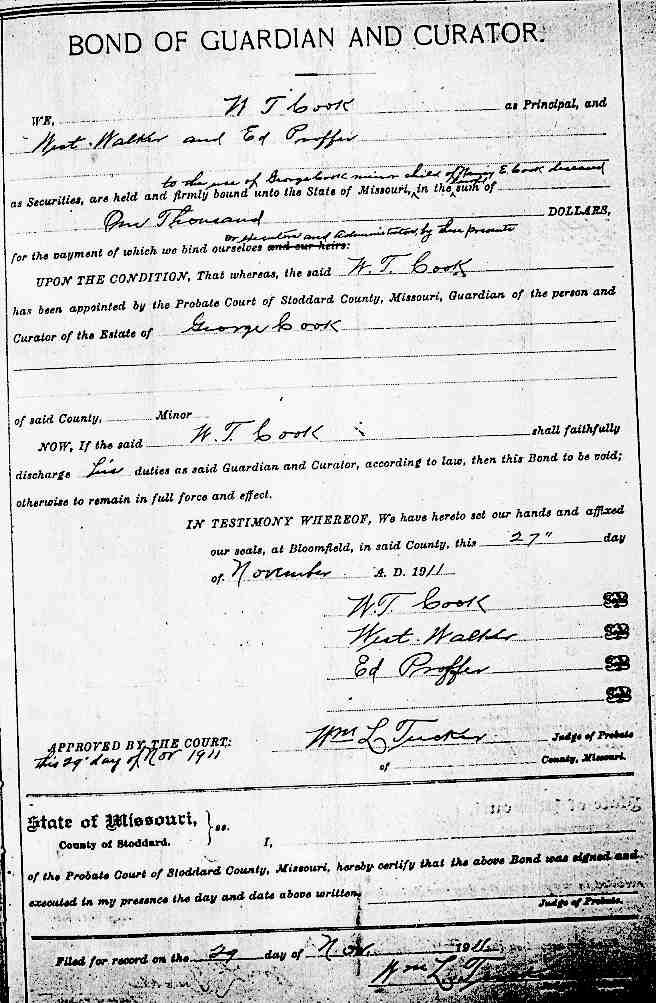 BOND OF GUARDIAN AND CURATOR.
WE, W T Cook as Principal, and
West Walker and Ed Proffer
to the use of George Cook minor child of E. Cook deceased
as Securities, are held and firmly bound unto the State of Missouri, in the sum of
One Thousand DOLLARS,
or executors and Administrators, by these presents
for the payment of which we bind ourselves and our heirs:
UPON THE CONDITION, That whereas, the said W. T. Cook
has been appointed by the Probate Court of Stoddard County, Missouri, Guardian of the person and
Curator of the Estate of George Cook
of said County, Minor
NOW, If the said W. T. Cook shall faithfully
discharge his duties as said Guardian and Curator, according to law, then this Bond to be void;
otherwise to remain in full force and effect.
IN TESTIMONY WHEREOF, We have hereto set our hands and affixed
our seals, at Bloomfield, in said County, this 27" day
of November A. D. 1911
W. T. Cook
West Walker
Ed Proffer
APPROVED BY THE COURT: Wm L Tucker Judge of Probate
this 29" day of Nov 1911
of County, Missouri.
State of Missouri, } ss.
County of Stoddard.
I,
of the Probate Court of Stoddard County, Missouri, hereby certify that the above Bond was signed and
executed in my presence the day and date above written.
Judge of Probate.
Filed for record on the 29 day of Nov. 1911
Wm L